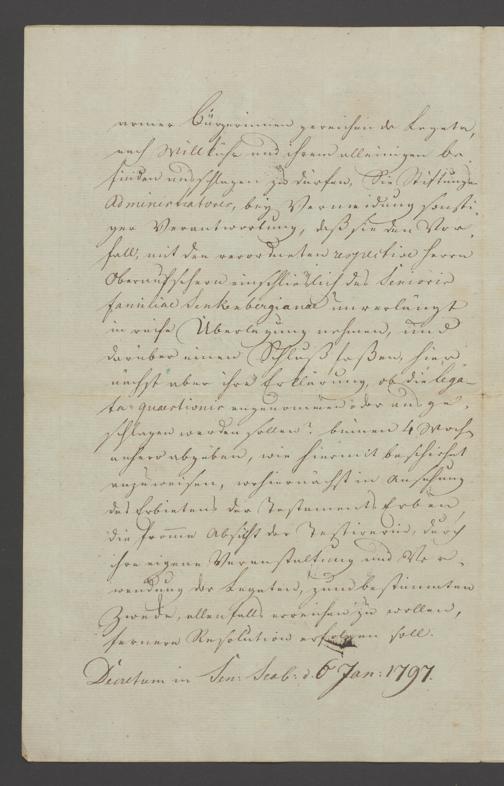 armer Bürgerinnen gereichende Legata,
nach Willkühr und ihrem alleinigen be¬
finden auszuschlagen zu dürfen, die Stiftungs
Administratores, bey Vermeidung sonsti¬
ger Verantwortung, daß sie den Vor¬
fall, mit den verordneten respective Herrn
Oberaufsehern einschließlich des Senioris
familiae Senkenbergianae unverlängt
in reife Überlegung nehmen, und
darüber einen Schluß faßen, hier
nächst aber ihre Erklärung, ob die lega¬
ta quaestionis angenommen oder ausge¬
schlagen werden sollen? binnen 4 Woch
anhero abgeben, wie hiermit beschiehet
anzuweisen, wohiernächst in Ansehung
des Erbietens der Testaments Erben
die fromme Absicht der Testirerin, durch
ihre eigene Veranstaltung und Ver¬
wendung der Legaten, zum bestimmten
Zwecke, allenfalls erreichen zu wollen,
fernere Resolution erfolgen soll.
Decretum in Sen: Scab: d. 6 Jan: 1797.